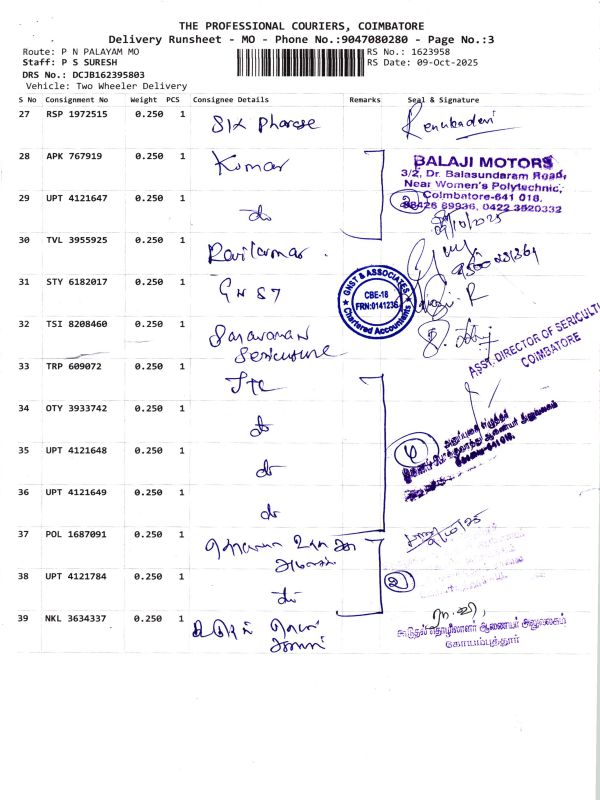 THE PROFESSIONAL COURIERS, COIMBATORE
Delivery Runsheet - MO - Phone No.:9047080280 - Page No.:3
Route: P N PALAYAM MO
RS No.: 1623958
Staff: P S SURESH
RS Date: 09-Oct-2025
DRS No.: DCJB162395803
Vehicle: Two Wheeler Delivery
S No Consignment No Weight PCS Consignee Details Remarks Seal & Signature
27 RSP 1972515 0.250 1 Renukadevi
28 APK 767919 0.250 1 Kumar
BALAJI MOTORS
3/2, Dr. Balasundaram Road,
Near Women's Polytechnic,
Coimbatore-641 018.
98426 89936, 0422 3520332
29 UPT 4121647 0.250 1 do
09/10/2025
30 TVL 3955925 0.250 1 Ravikumar
31 STY 6182017 0.250 1 GNST
GNST & ASSOCIATES
CBE-18
FRN:014123S
Chartered Accountants
32 TSI 8208460 0.250 1 Saravanan
Sericulture
ASST. DIRECTOR OF SERICULTU
COIMBATORE
33 TRP 609072 0.250 1 JTC
34 OTY 3933742 0.250 1 do
35 UPT 4121648 0.250 1 do
36 UPT 4121649 0.250 1 do
37 POL 1687091 0.250 1
38 UPT 4121784 0.250 1 do
39 NKL 3634337 0.250 1
கூடுதல் தொழிலாளர் ஆணையர் அலுவலகம்
கோயம்புத்தூர்